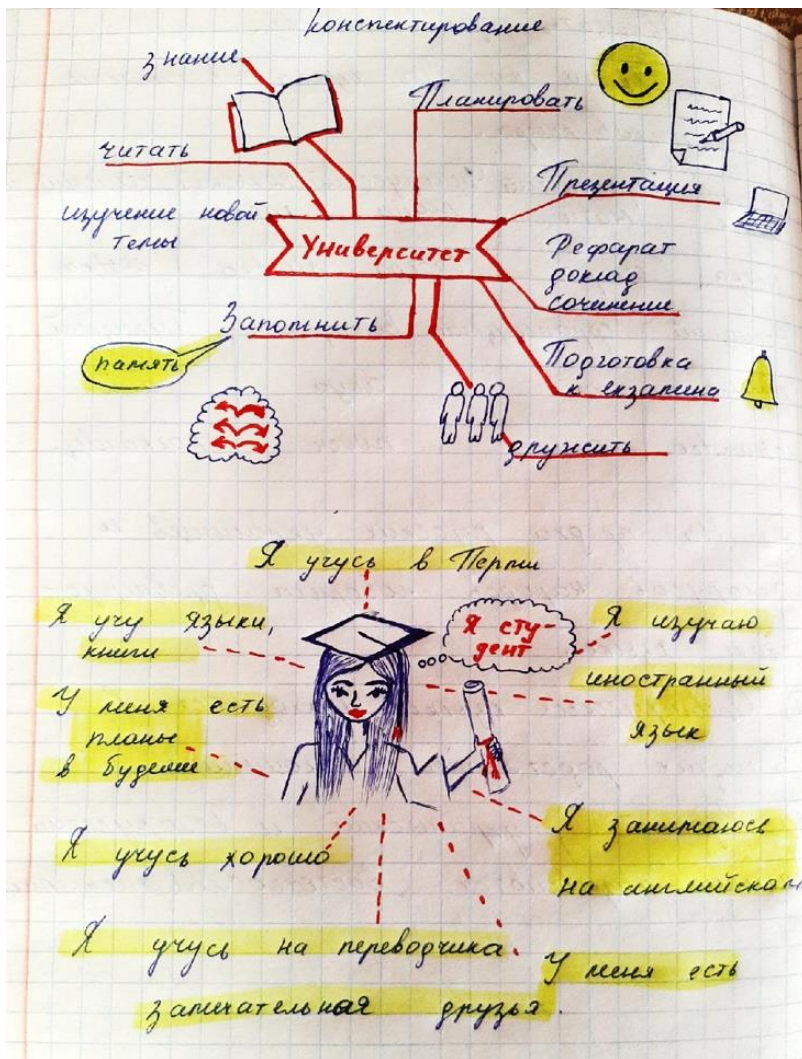 конспектирование
знание
Планировать
читать
Презентация
изучение новой
темы
Университет
Рефарат
доклад
сочинение
Запомнить
память
Подготовка
к екзамена
дружить
Я учусь в Перми
Я учу языки,
книги
Я сту-
дент
Я изучаю
иностранный
язык
У меня есть
планы
в будеще
Я занимаюсь
на английском
Я учусь хорошо
Я учусь на переводчика
У меня есть
замечательная друзья.